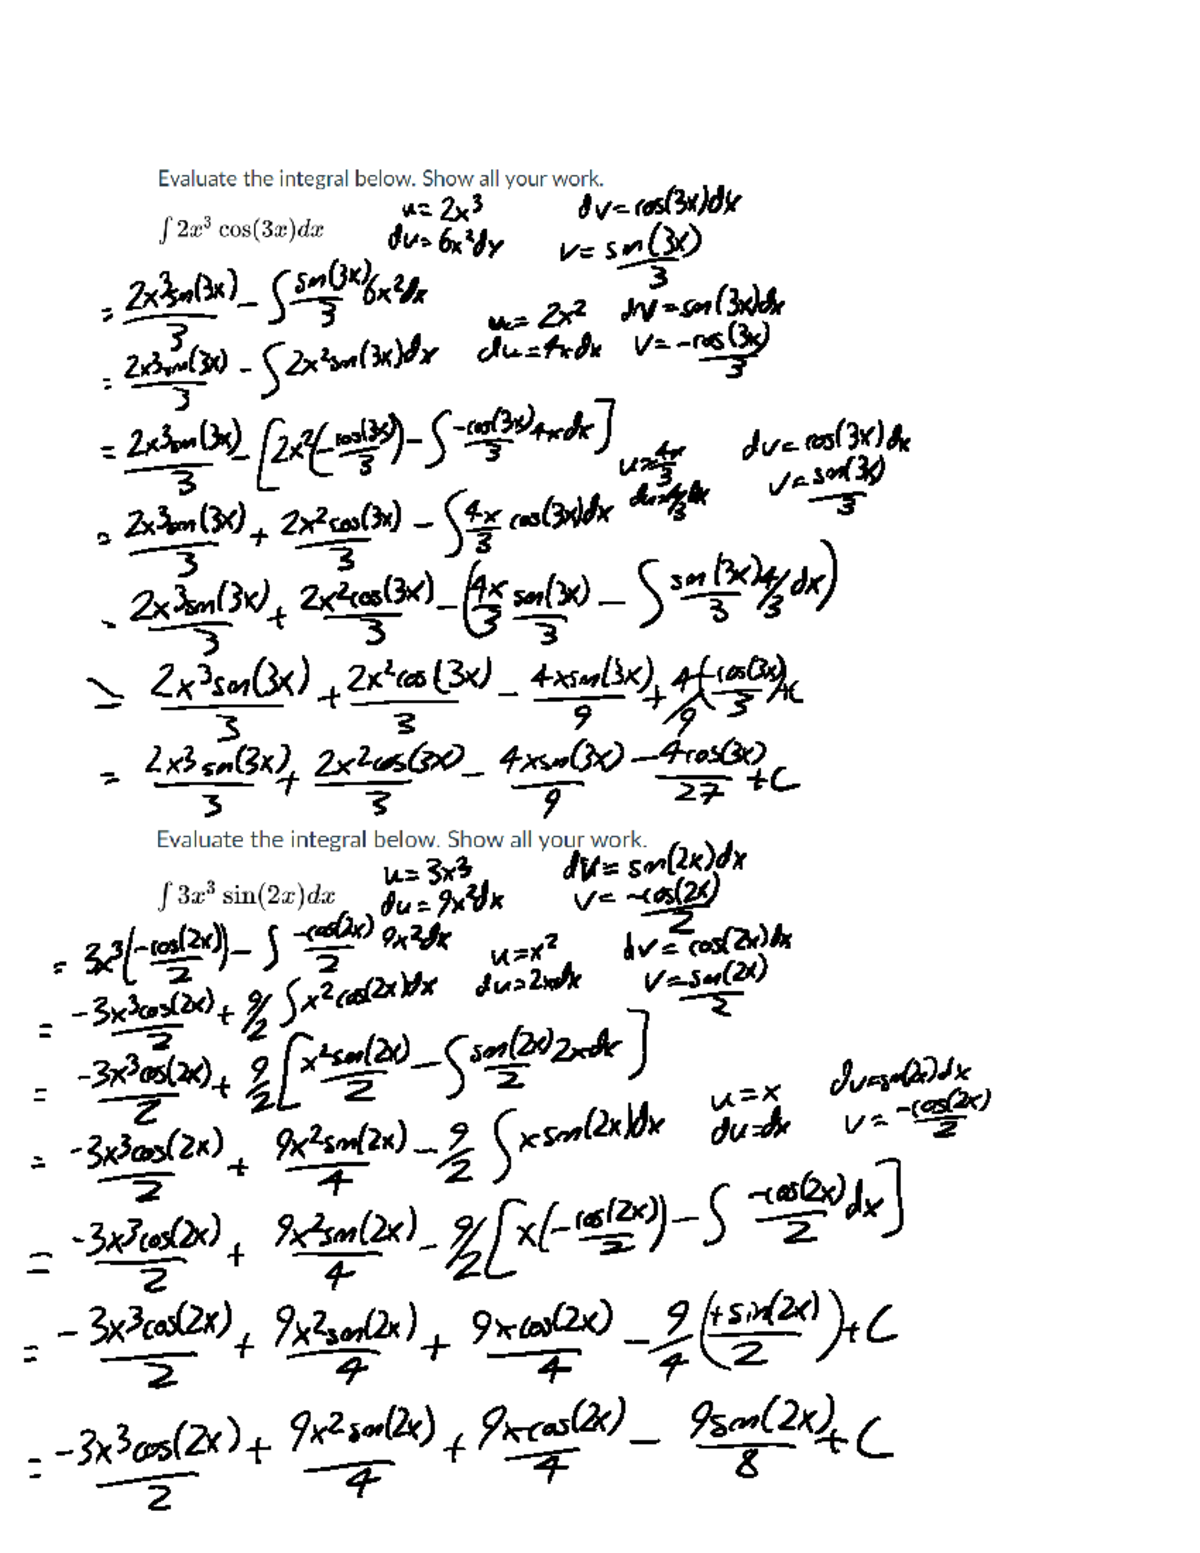 Evaluate the integral below. Show all your work.
∫ 2x³ cos(3x)dx   u = 2x³   dv = cos(3x)dx
du = 6x²dx   v = sin(3x)/3
= 2x³sin(3x)/3 - ∫ sin(3x)/3 6x²dx
u = 2x²   dv = sin(3x)dx
= 2x³sin(3x)/3 - ∫ 2x²sin(3x)dx   du = 4x dx   v = -cos(3x)/3
= 2x³sin(3x)/3 - [2x²(-cos(3x)/3) - ∫ -cos(3x)/3 4x dx]
u = 4x/3   dv = cos(3x)dx
du = 4/3 dx   v = sin(3x)/3
= 2x³sin(3x)/3 + 2x²cos(3x)/3 - ∫ 4x/3 cos(3x)dx
= 2x³sin(3x)/3 + 2x²cos(3x)/3 - (4x/3 sin(3x)/3 - ∫ sin(3x)/3 4/3 dx)
= 2x³sin(3x)/3 + 2x²cos(3x)/3 - 4xsin(3x)/9 + 4/9 (-cos(3x)/3) + C
= 2x³sin(3x)/3 + 2x²cos(3x)/3 - 4xsin(3x)/9 - 4cos(3x)/27 + C
Evaluate the integral below. Show all your work.
∫ 3x³ sin(2x)dx   u = 3x³   dv = sin(2x)dx
du = 9x²dx   v = -cos(2x)/2
= 3x³(-cos(2x)/2) - ∫ -cos(2x)/2 9x²dx
u = x²   dv = cos(2x)dx
= -3x³cos(2x)/2 + 9/2 ∫ x²cos(2x)dx   du = 2xdx   v = sin(2x)/2
= -3x³cos(2x)/2 + 9/2 [x²sin(2x)/2 - ∫ sin(2x)/2 2xdx]
u = x   dv = sin(2x)dx
= -3x³cos(2x)/2 + 9x²sin(2x)/4 - 9/2 ∫ x sin(2x)dx   du = dx   v = -cos(2x)/2
= -3x³cos(2x)/2 + 9x²sin(2x)/4 - 9/2 [x(-cos(2x)/2) - ∫ -cos(2x)/2 dx]
= -3x³cos(2x)/2 + 9x²sin(2x)/4 + 9xcos(2x)/4 - 9/4 (+sin(2x)/2) + C
= -3x³cos(2x)/2 + 9x²sin(2x)/4 + 9xcos(2x)/4 - 9sin(2x)/8 + C